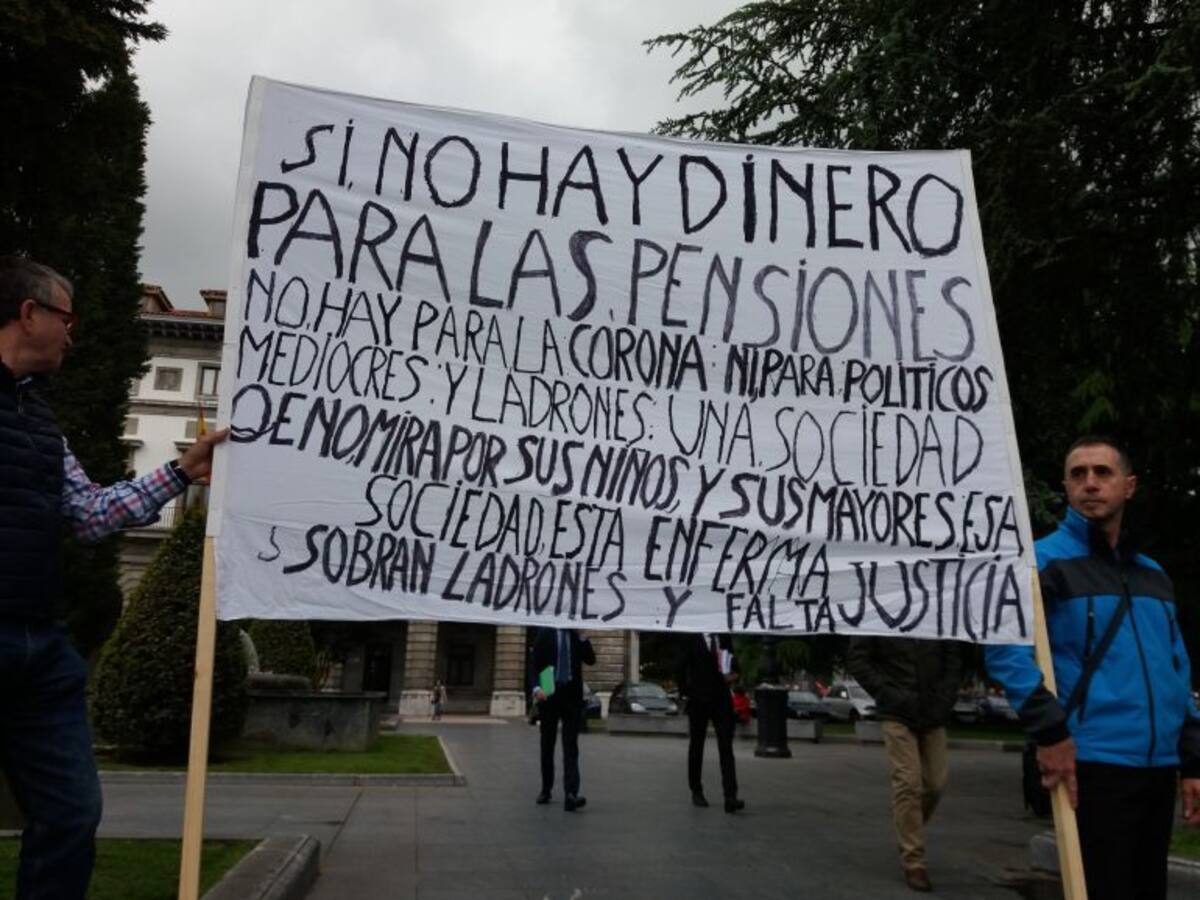 SI, NO HAY DINERO
PARA LAS, PENSIONES
NO, HAY PARA LA CORONA: NI, PARA: POLITICOS
MEDIOCRES: Y LADRONES: UNA, SOCIEDAD
QE NO, MIRA POR SUS NIÑOS, Y SUS MAYORES; ESA
SOCIEDAD, ESTA ENFERMA
SOBRAN LADRONES Y FALTA JUSTICIA